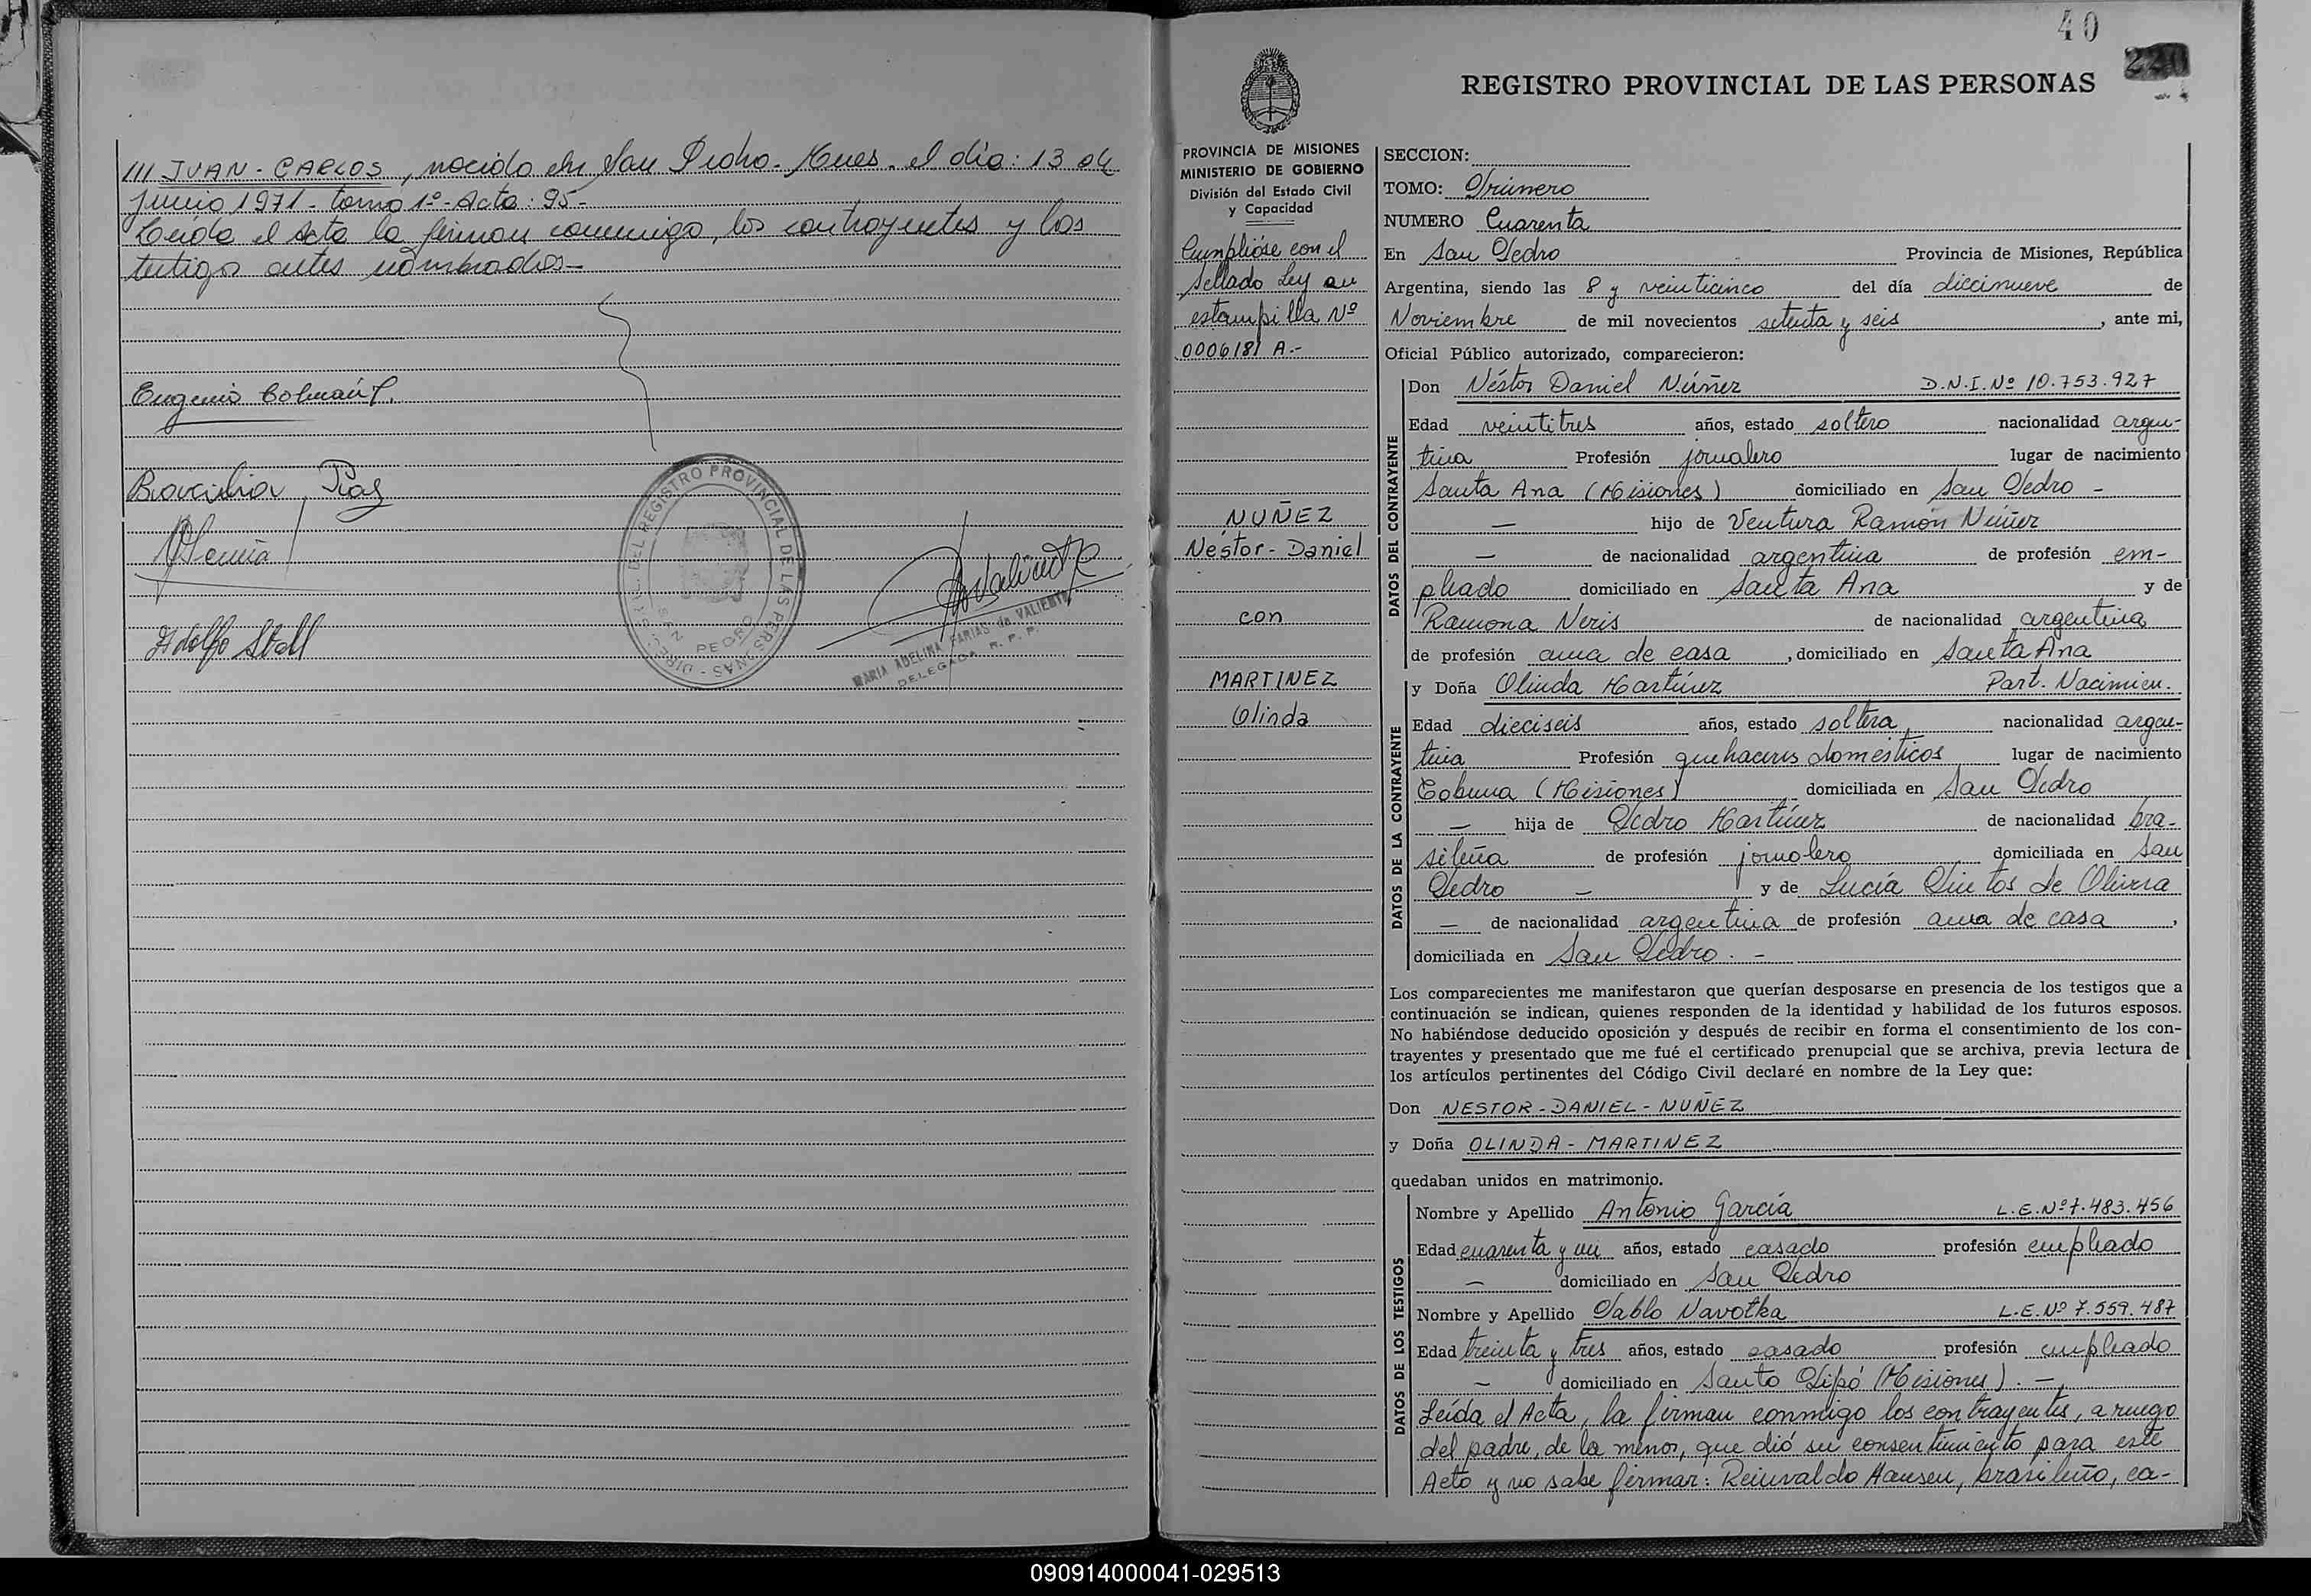 /// JUAN - CARLOS, nacido en San Pedro - Mnes. el día: 13 de
Junio 1971 - tomo 1º - Acta: 95 -
Leída el Acta la firman conmigo, los contrayentes y los
testigos antes nombrados -
Eugenio
Adolfo Stell
DIREC. GRAL. DEL REGISTRO PROVINCIAL DE LAS PERSONAS -
SAN PEDRO
MARIA ADELINA FARIAS de VALIENTE
DELEGADA R. P. P.
40
220
REGISTRO PROVINCIAL DE LAS PERSONAS
PROVINCIA DE MISIONES
MINISTERIO DE GOBIERNO
División del Estado Civil
y Capacidad
Cumplióse con el
sellado Ley en
estampilla Nº
0006181 A.-
NUÑEZ
Néstor - Daniel
con
MARTINEZ
Olinda
SECCION:
TOMO: Primero
NUMERO Cuarenta
En San Pedro Provincia de Misiones, República
Argentina, siendo las 8 y veinticinco del día diecinueve de
Noviembre de mil novecientos setenta y seis, ante mi,
Oficial Público autorizado, comparecieron:
DATOS DEL CONTRAYENTE
Don Néstor Daniel Núñez D.N.I. Nº 10.753.927
Edad veintitres años, estado soltero nacionalidad argen-
tina Profesión jornalero lugar de nacimiento
Santa Ana (Misiones) domiciliado en San Pedro -
— hijo de Ventura Ramón Núñez
— de nacionalidad argentina de profesión em-
pleado domiciliado en Santa Ana y de
Ramona Neris de nacionalidad argentina
de profesión ama de casa, domiciliado en Santa Ana
DATOS DE LA CONTRAYENTE
y Doña Olinda Martínez Part. Nacimien.
Edad dieciseis años, estado soltera nacionalidad argen-
tina Profesión quehaceres domésticos lugar de nacimiento
(Misiones) domiciliada en San Pedro
— hija de Pedro Martínez de nacionalidad bra-
sileña de profesión jornalero domiciliada en San
Pedro — y de Lucía Pintos de Olivera
— de nacionalidad argentina de profesión ama de casa,
domiciliada en San Pedro. -
Los comparecientes me manifestaron que querían desposarse en presencia de los testigos que a
continuación se indican, quienes responden de la identidad y habilidad de los futuros esposos.
No habiéndose deducido oposición y después de recibir en forma el consentimiento de los con-
trayentes y presentado que me fué el certificado prenupcial que se archiva, previa lectura de
los artículos pertinentes del Código Civil declaré en nombre de la Ley que:
Don NESTOR - DANIEL - NUÑEZ
y Doña OLINDA - MARTINEZ
quedaban unidos en matrimonio.
DATOS DE LOS TESTIGOS
Nombre y Apellido Antonio García L.E. Nº 7.483.456
Edad cuarenta y un años, estado casado profesión empleado
— domiciliado en San Pedro
Nombre y Apellido Pablo Navotka L.E. Nº 7.559.487
Edad treinta y tres años, estado casado profesión empleado
— domiciliado en Santo Pipó (Misiones). -
Leída el Acta, la firman conmigo los contrayentes, a ruego
del padre, de la menor, que dió su consentimiento para este
Acto y no sabe firmar: Reinvaldo Hansen, brasileño, ca-
090914000041-029513